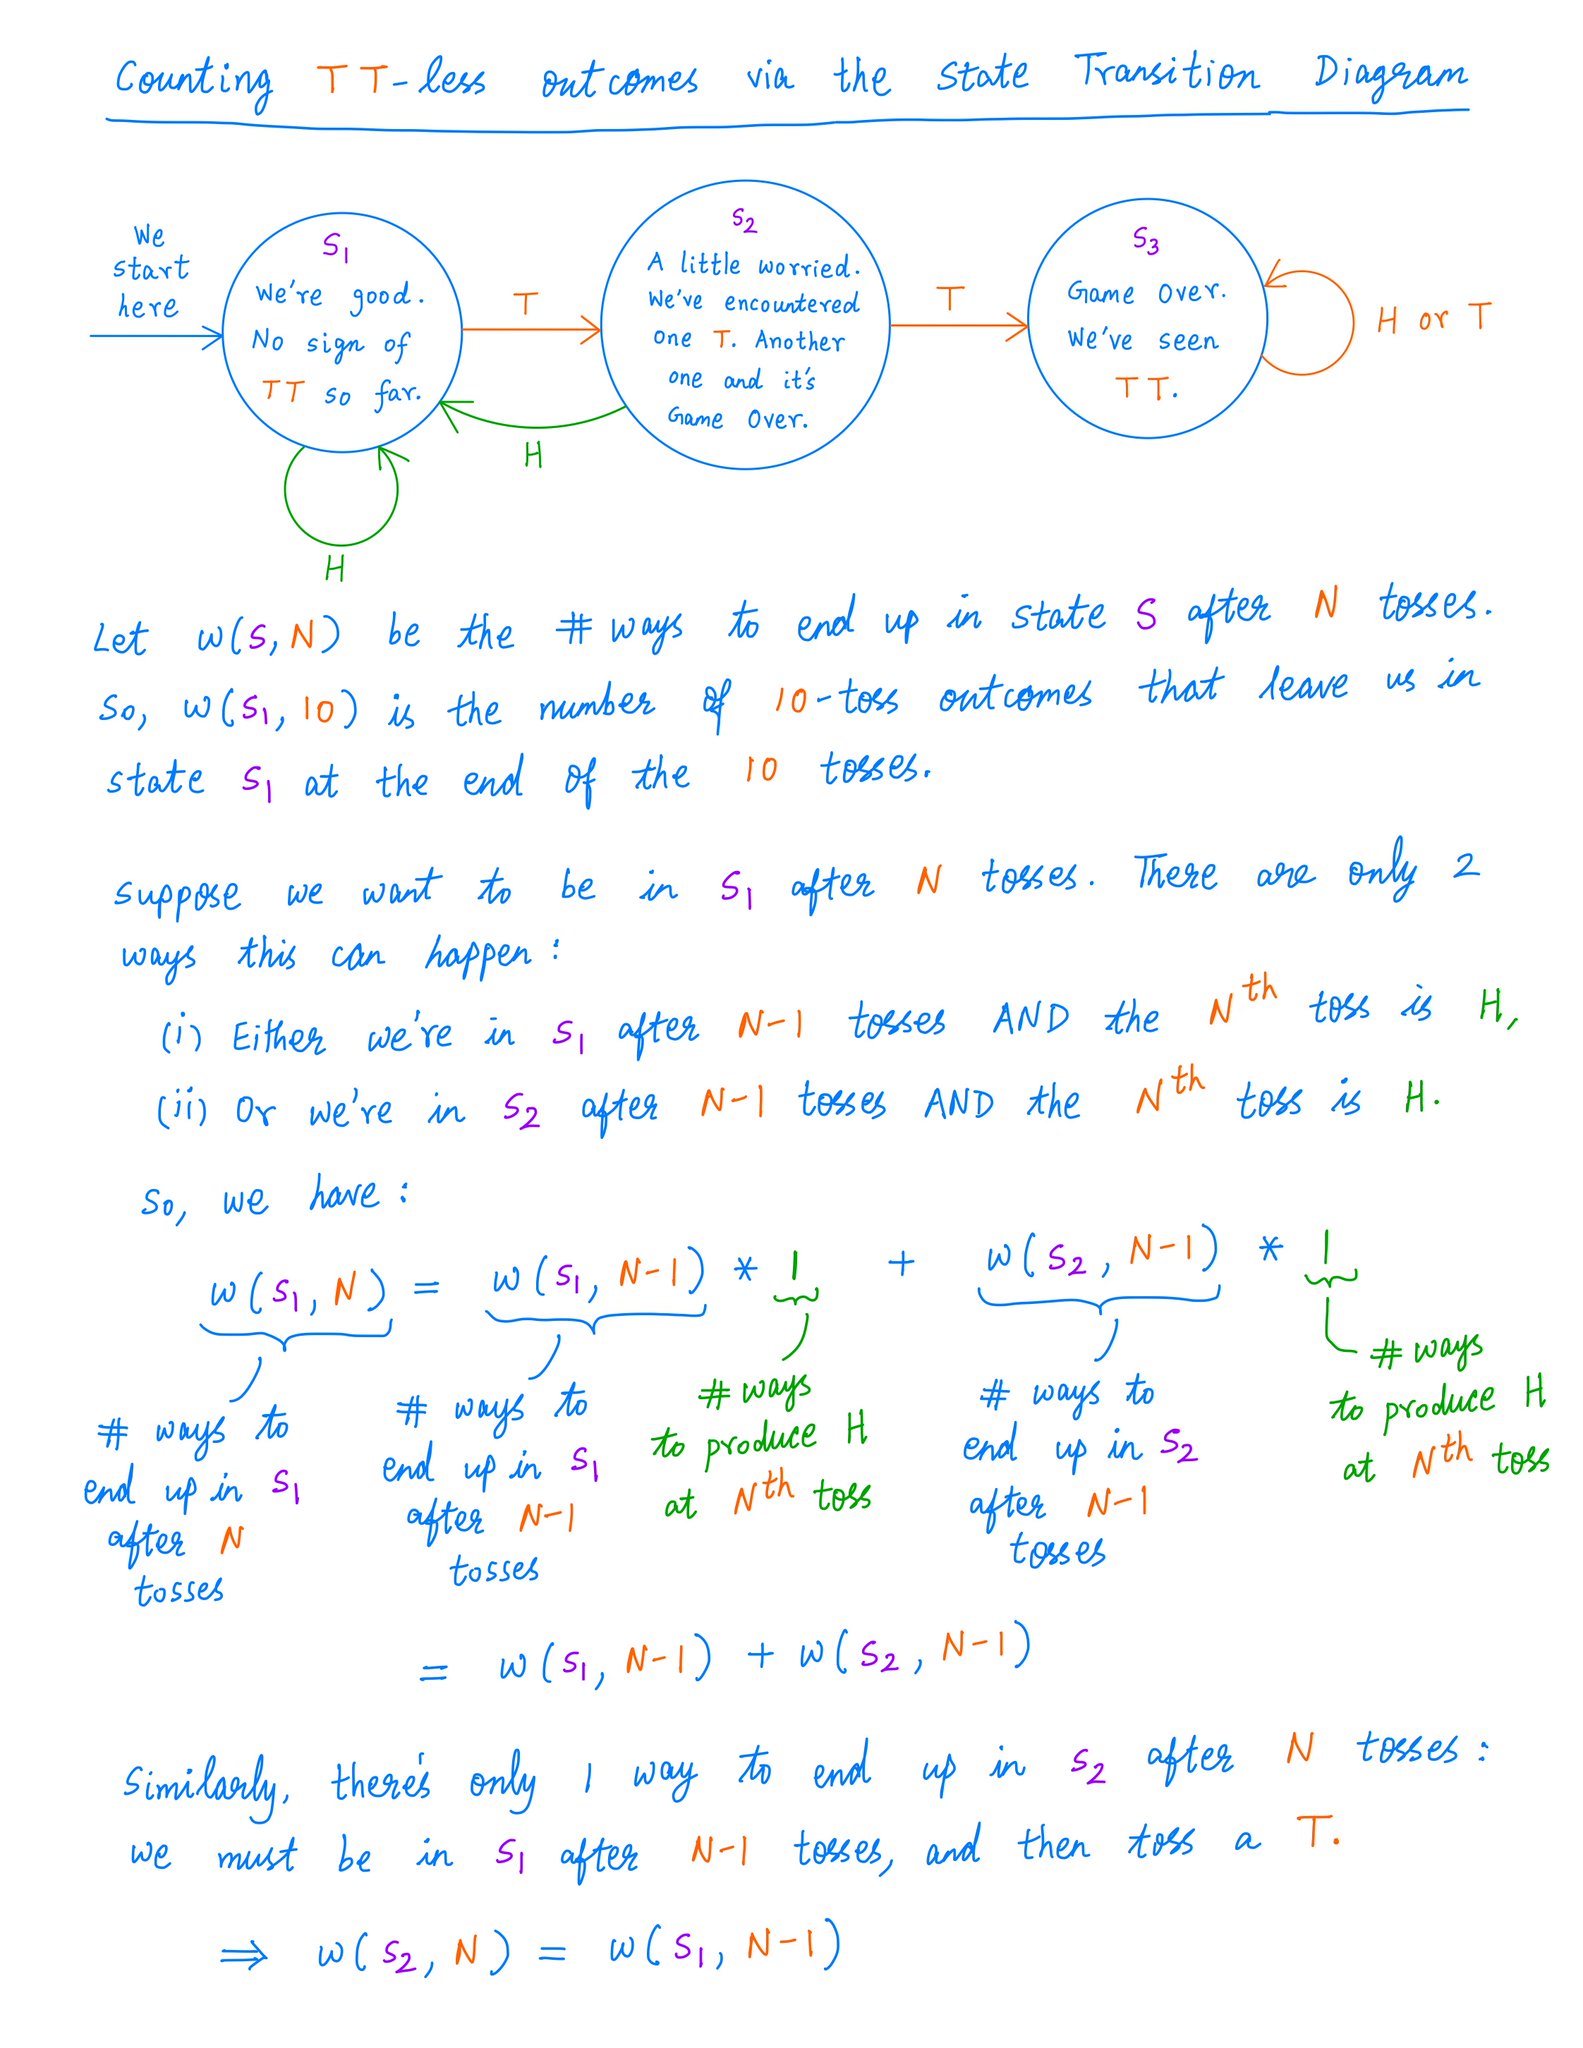 Counting TT-less outcomes via the State Transition Diagram
We
start
here
S1
We're good.
No sign of
TT so far.
H
T
H
S2
A little worried.
We've encountered
one T. Another
one and it's
Game Over.
T
S3
Game Over.
We've seen
TT.
H or T
Let w(S, N) be the # ways to end up in state S after N tosses.
So, w(S1, 10) is the number of 10-toss outcomes that leave us in
state S1 at the end of the 10 tosses.
Suppose we want to be in S1 after N tosses. There are only 2
ways this can happen:
(i) Either we're in S1 after N-1 tosses AND the Nth toss is H,
(ii) Or we're in S2 after N-1 tosses AND the Nth toss is H.
So, we have:
w(S1, N) = w(S1, N-1) * 1 + w(S2, N-1) * 1
# ways to
end up in S1
after N
tosses
# ways to
end up in S1
after N-1
tosses
# ways
to produce H
at Nth toss
# ways to
end up in S2
after N-1
tosses
# ways
to produce H
at Nth toss
= w(S1, N-1) + w(S2, N-1)
Similarly, there's only 1 way to end up in S2 after N tosses:
we must be in S1 after N-1 tosses, and then toss a T.
⇒ w(S2, N) = w(S1, N-1)